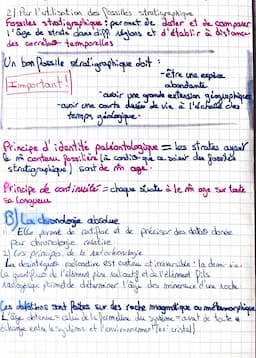 2/ Par l'utilisation des fossiles stratigraphiques
Fossiles stratigraphique : permet de dater et de comparer
l'âge de strate dans diff régions et d'établir à distance
des corrélat° temporelles
Un bon fossile stratigraphique doit :
-être une espèce
abondante
Important !
-avoir une grande extension géographique
-avoir une courte durée de vie à l'échelle des
temps géologique.
Principe d'identité paléontologique = les strates ayant
le m̂ contenu fossilifère (à condit° que ce soient des fossiles
stratigraphique) sont de m̂ age.
Principe de continuité = chaque strate à le m̂ age sur toute
sa longueur
B) La chronologie absolue
Elle permet de et de préciser des dates donné
par chronologie relative
2) Les principes de la radiochronologie
La désintégrat° radioactive est continue et irréversible : la demi-vie.
La quantificat° de l'élément père radioactif et de l'élément fils
radiogénique permet de déterminer l'âge des minéraux d'une roche
Les datations sont faites sur des roche magmatique ou métamorphique
L'âge obtenue = celui de la fermeture du système = arret de toute
échange entre le système et l'environnement (ex: cristal)